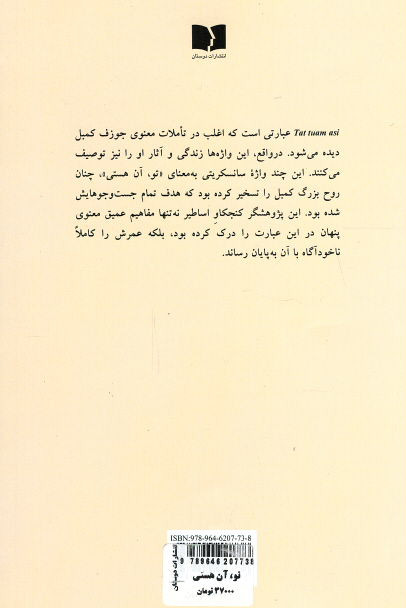 انتشارات دوستان
Tat tuam asi عبارتی است که اغلب در تأملات معنوی جوزف کمبل
دیده می‌شود. درواقع، این واژه‌ها زندگی و آثار او را نیز توصیف
می‌کنند. این چند واژهٔ سانسکریتی به‌معنای «تو، آن هستی»، چنان
روح بزرگ کمبل را تسخیر کرده بود که هدف تمام جست‌وجوهایش
شده بود. این پژوهشگر کنجکاوِ اساطیر نه‌تنها مفاهیم عمیق معنوی
پنهان در این عبارت را درک کرده بود، بلکه عمرش را کاملاً
ناخودآگاه با آن به‌پایان رساند.
ISBN:978-964-6207-73-8
9 789646 207738
انتشارات دوستان
تو، آن هستی
۳۷۰۰۰ تومان